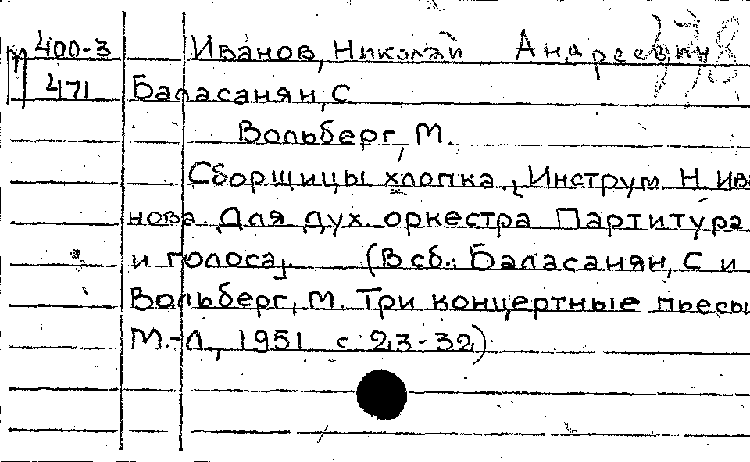 П 400-3 Иванов, Николай Андреевич
471 Баласанян, С
Вольберг, М.
Сборщицы хлопка, Инструм Н Ива
нова Для дух. оркестра Партитура
и голоса, (В сб.: Баласанян, С и
Вольберг, М. Три концертные пьесы
М.-Л., 1951 с 23-32)